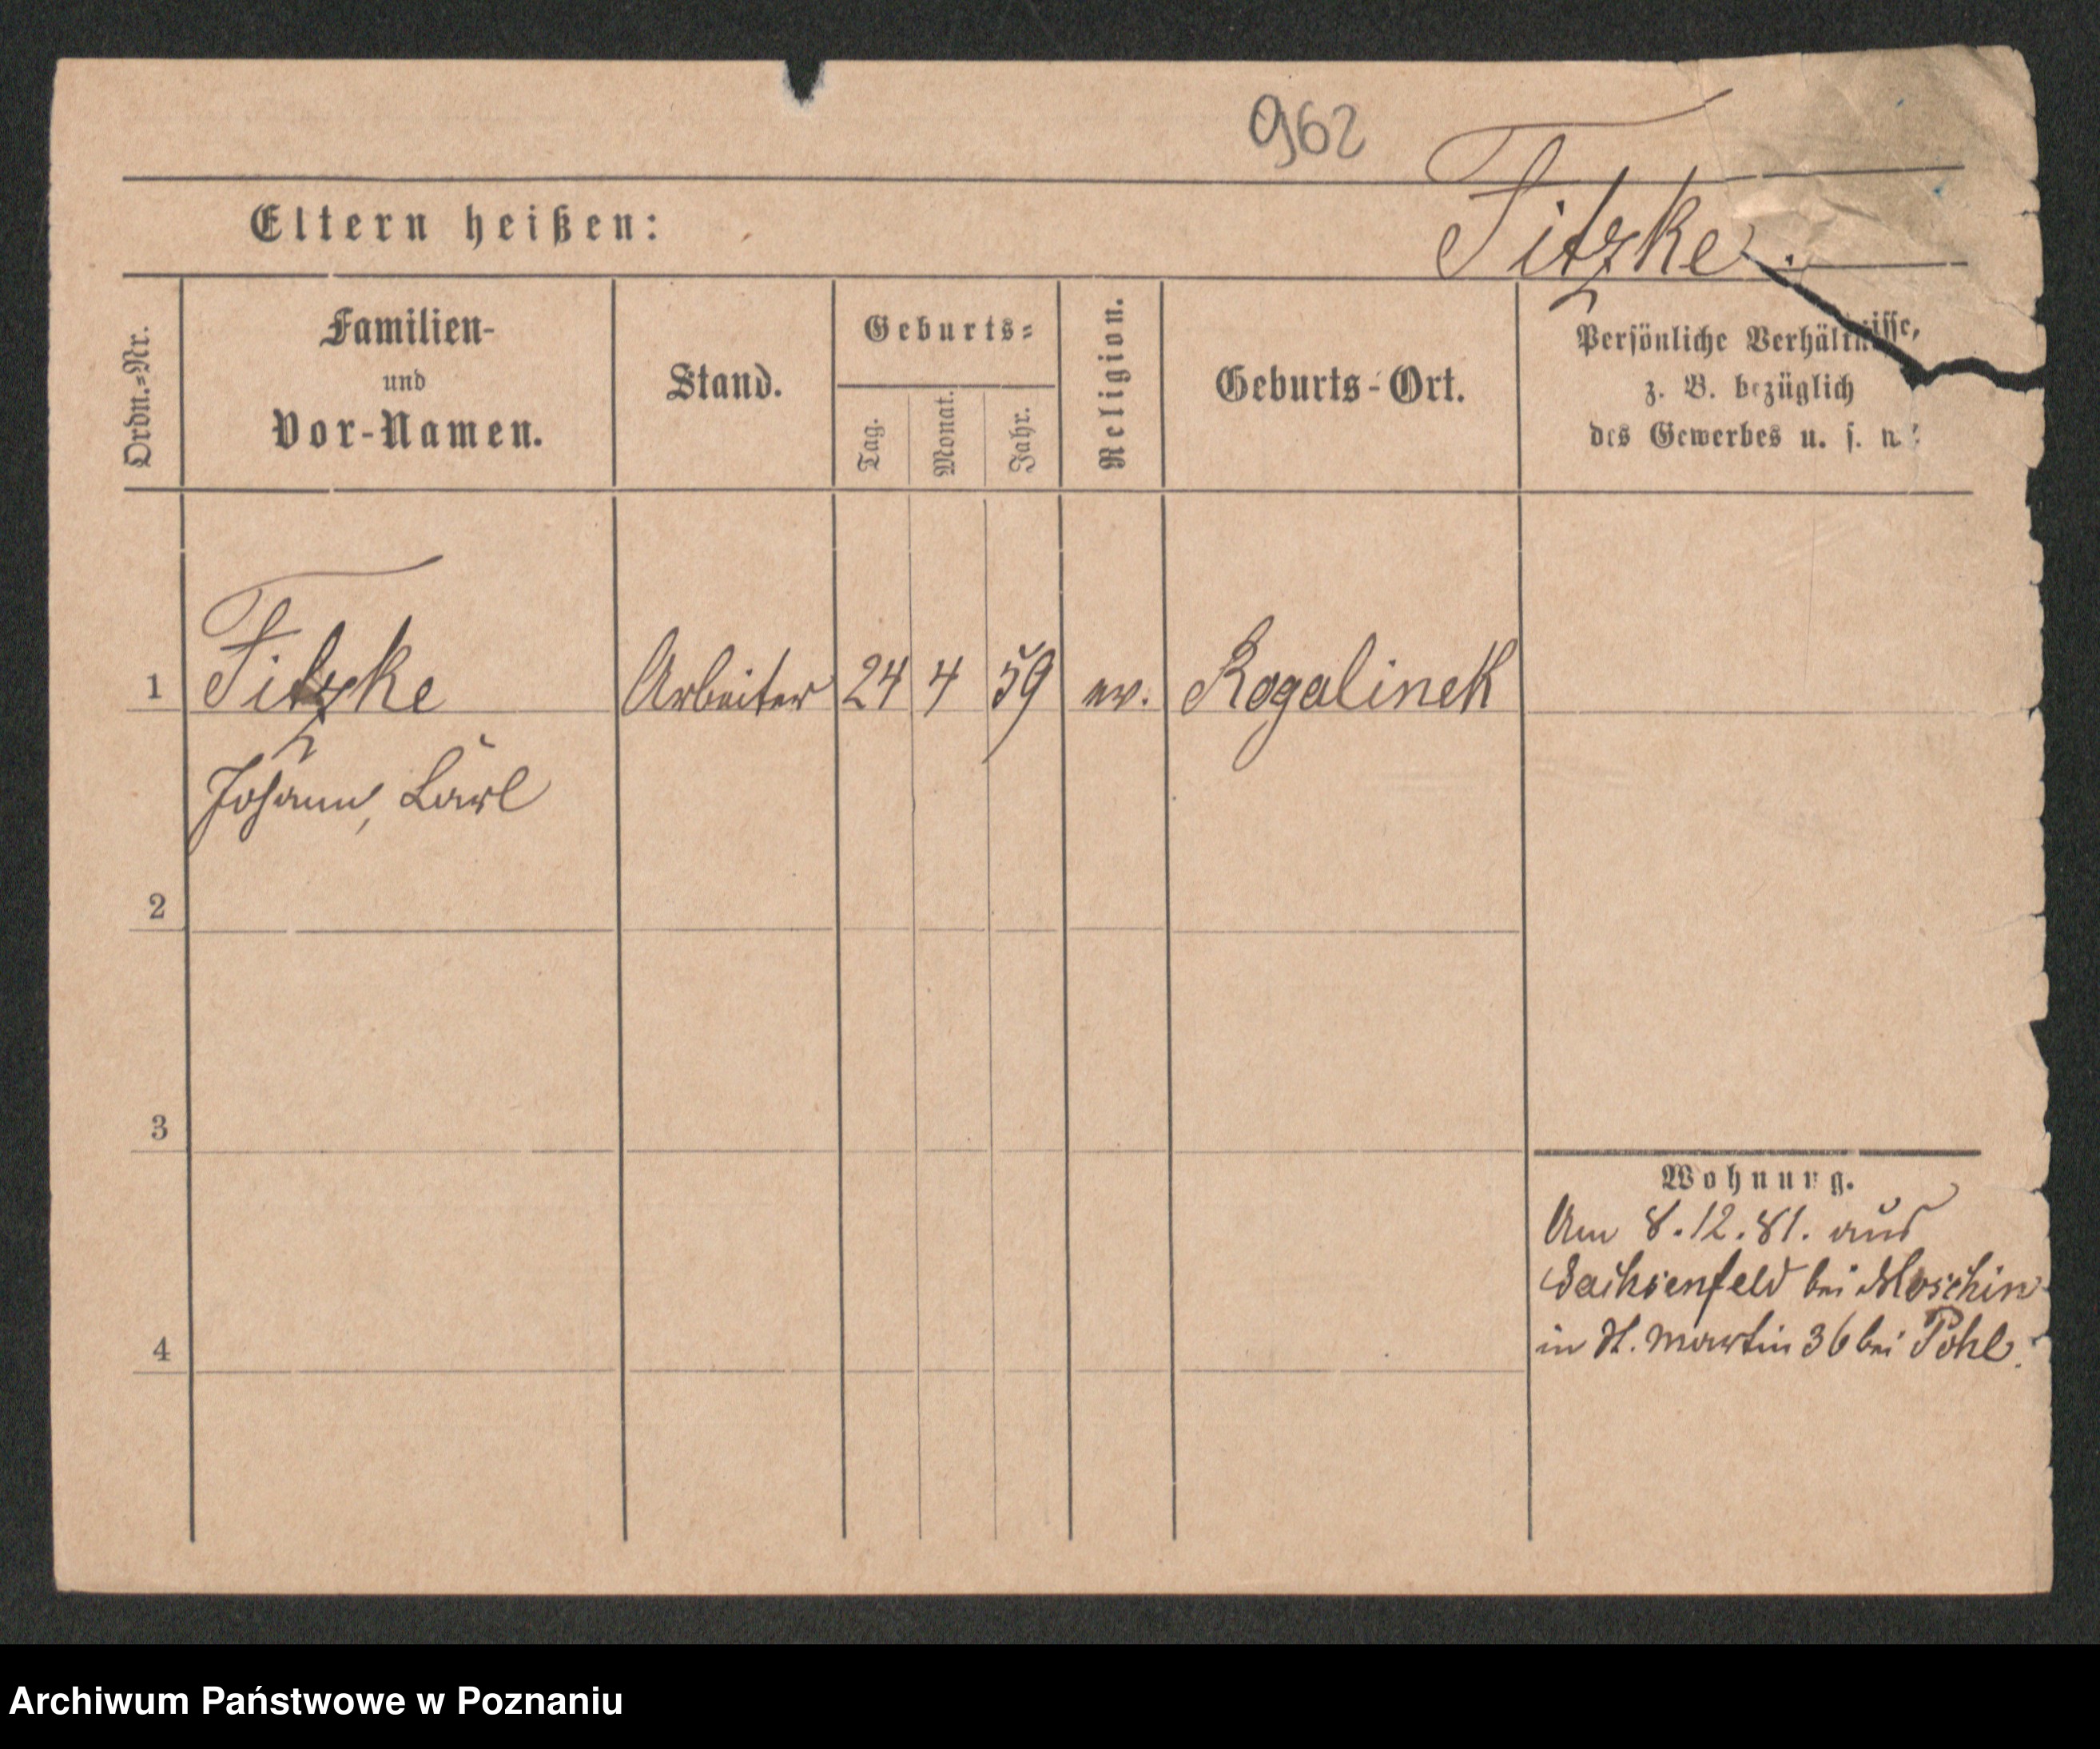 962
Fitzke.
Eltern heißen:
Ordn.=Nr.
Familien-
und
Vor-Namen.
Stand.
Geburts=
Tag.
Monat.
Jahr.
Religion.
Geburts-Ort.
Persönliche Verhältnisse,
z. B. bezüglich
des Gewerbes u. s. w.
1 Fitzke Arbeiter 24 4 59 ev. Rogalinek
Johann, Carl
2
3
4
Wohnung.
Am 8.12.81. aus
Sachsenfeld bei Moschin
in St. Martin 36 bei Pohl.
Archiwum Państwowe w Poznaniu